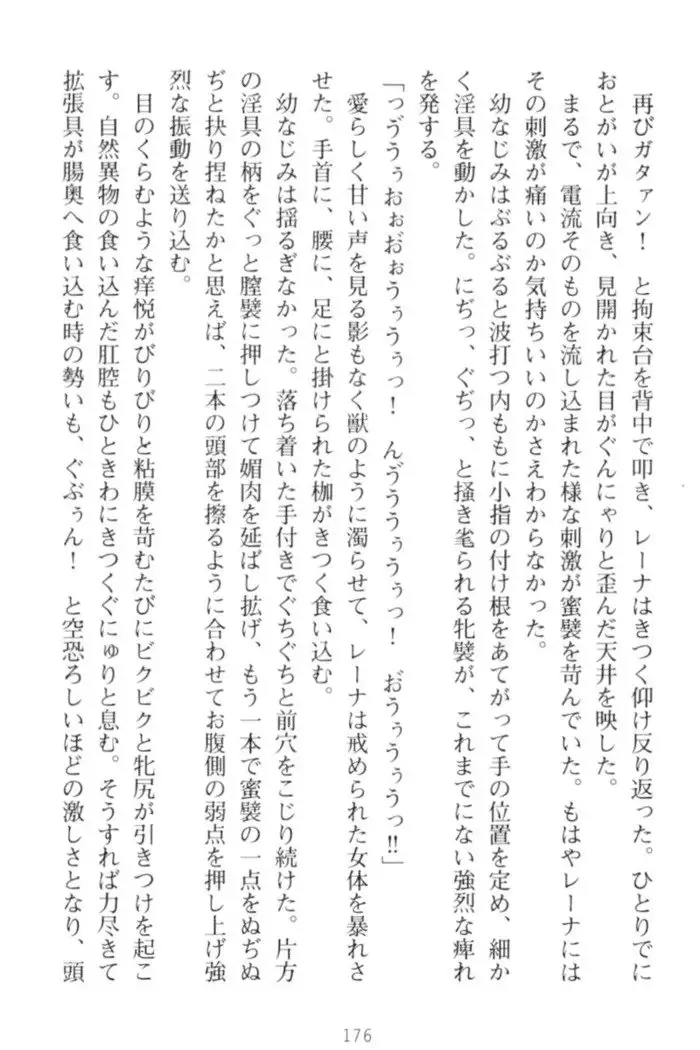 再びガタァン！　と拘束台を背中で叩き、レーナはきつく仰け反り返った。ひとりでに
おとがいが上向き、見開かれた目がぐんにゃりと歪んだ天井を映した。
まるで、電流そのものを流し込まれた様な刺激が蜜襞を苛んでいた。もはやレーナには
その刺激が痛いのか気持ちいいのかさえわからなかった。
幼なじみはぶるぶると波打つ内ももに小指の付け根をあてがって手の位置を定め、細か
く淫具を動かした。にぢっ、ぐぢっ、と掻き毟られる牝襞が、これまでにない強烈な痺れ
を発する。
「っゔうぅおぉおぉうぅうぅっ！　んゔううぅうぅっ！　おゔうぅうぅうっ!!」
愛らしく甘い声を見る影もなく獣のように濁らせて、レーナは戒められた女体を暴れさ
せた。手首に、腰に、足にと掛けられた枷がきつく食い込む。
幼なじみは揺るぎなかった。落ち着いた手付きでぐちぐちと前穴をこじり続けた。片方
の淫具の柄をぐっと膣襞に押しつけて媚肉を延ばし拡げ、もう一本で蜜襞の一点をぬぢぬ
ぢと抉り捏ねたかと思えば、二本の頭部を擦るように合わせてお腹側の弱点を押し上げ強
烈な振動を送り込む。
目のくらむような痒悦がびりびりと粘膜を苛むたびにビクビクと牝尻が引きつけを起こ
す。自然異物の食い込んだ肛腔もひときわにきつくぐにゅりと息む。そうすれば力尽きて
拡張具が腸奥へ食い込む時の勢いも、ぐぶぅん！　と空恐ろしいほどの激しさとなり、頭
176